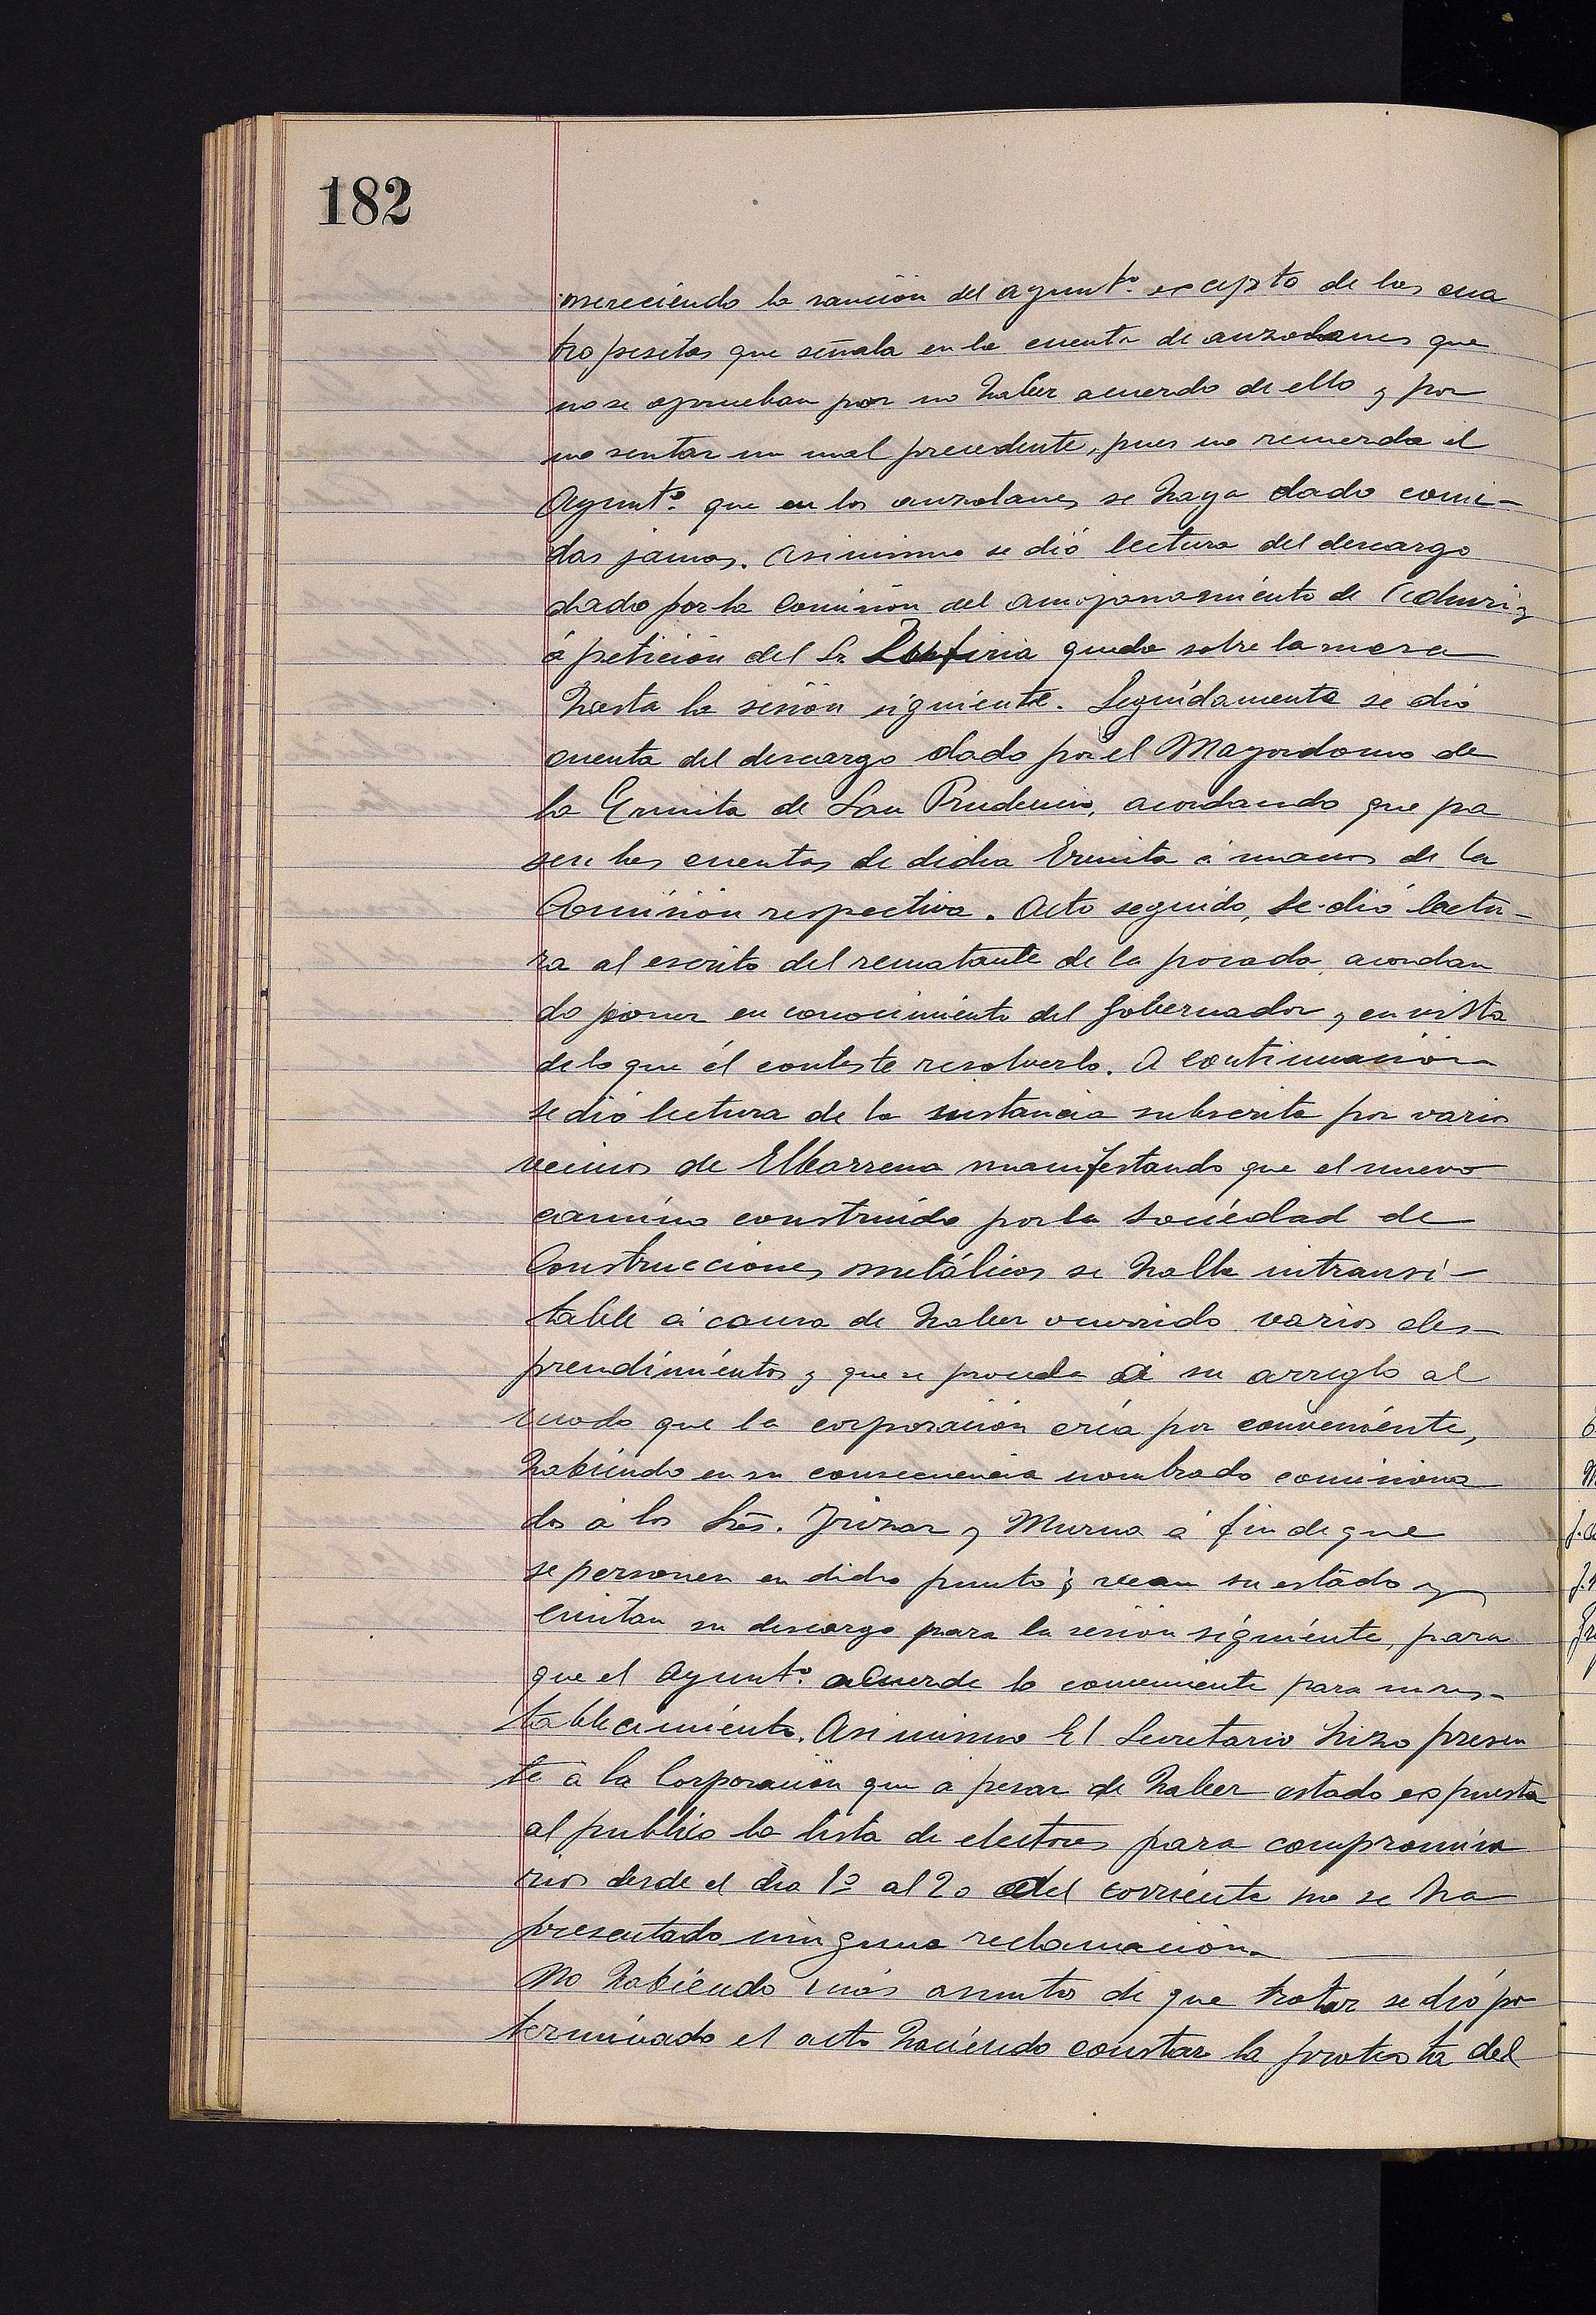 182
mereciendo la sanción del ayuntº. excepto de las cua
tro pesetas que señala en la cuenta de auzolanes que
no se aprueban por no haber acuerdo de ello y por
no sentar un mal precedente, pues no recuerda el
Ayuntº. que en los auzolanes se haya dado comi-
das jamas. Asimismo se dió lectura del descargo
dado por la Comisión del amojonamiento de
á petición del Sr quedo sobre la mesa
hasta la sesión siguiente. Seguidamente se dió
cuenta del descargo dado por el Mayordomo de
la Ermita de San Prudencio, acordando que pa
sen las cuentas de dicha Ermita á manos de la
Comisión respectiva. Acto seguido, se dió lectu-
ra al escrito del rematante de la posada, acordan
do poner en conocimiento del Gobernador y en vista
de lo que él conteste resolverlo. A continuación
se dió lectura de la instancia subscrita por varios
vecinos de Elbarrena manifestando que el nuevo
camino construido por la Sociedad de
Construcciones metálicas se halla intransi-
table á causa de haber ocurrido varios des-
prendimientos y que se proceda á su arreglo al
modo que la corporación créa por conveniente,
habiendo en su consecuencia nombrado comisiona
dos á los Srés. Irizar y Murua á fin de que
se personen en dicho punto y vean su estado y
emitan su descargo para la sesión siguiente, para
que el Ayuntº. acuerde lo conveniente para su res-
tablecimiento. Asimismo El Secretario hizo presen
te á la Corporación que a pesar de haber estado expuesta
al publico la lista de electores para compromisa
rios desde el dia 1º al 20 del corriente no se ha
presentado ninguna reclamación.
No habiendo más asuntos de que tratar se dió por
terminado el acto haciendo constar la protesta del